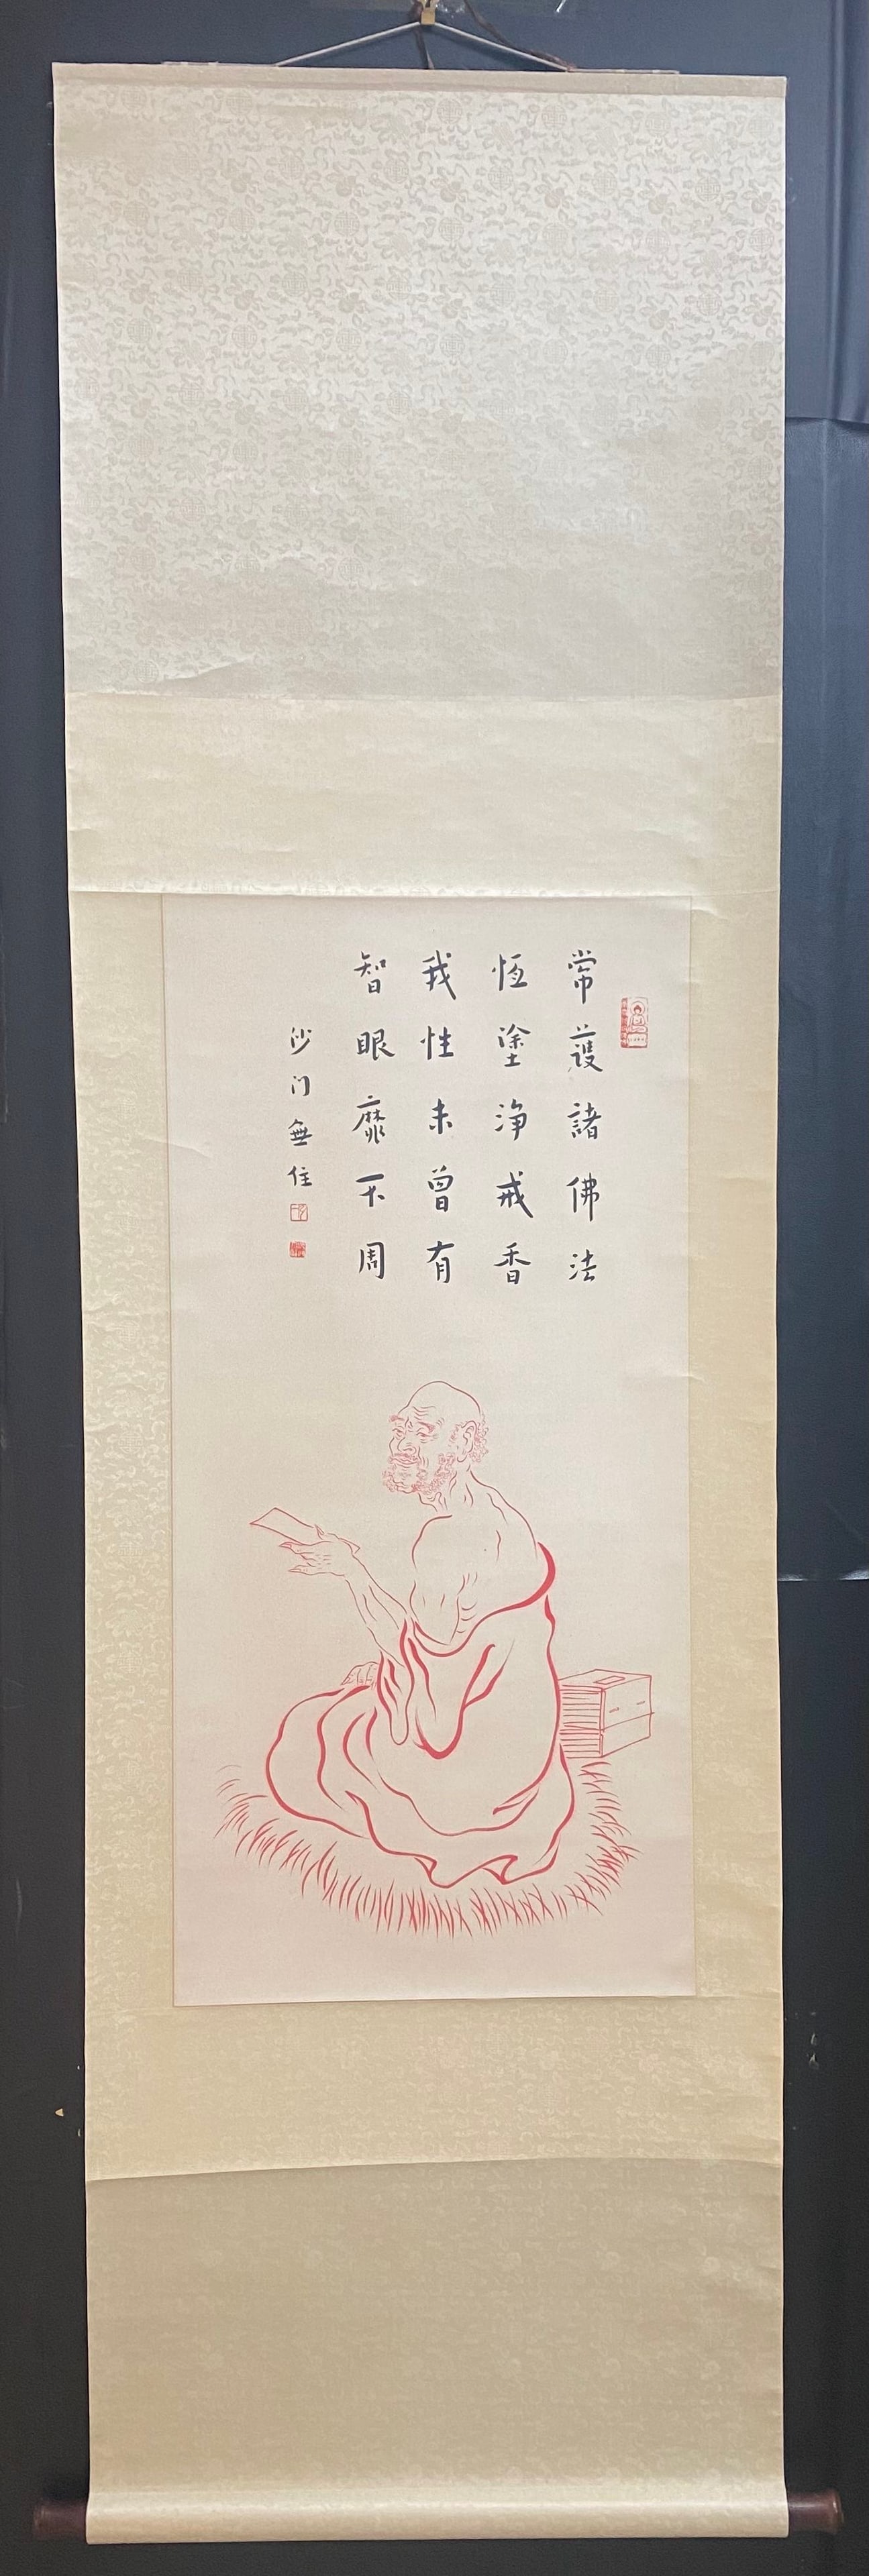 常護諸佛法
恆塗淨戒香
我性未曾有
智眼靡不周
沙门無住